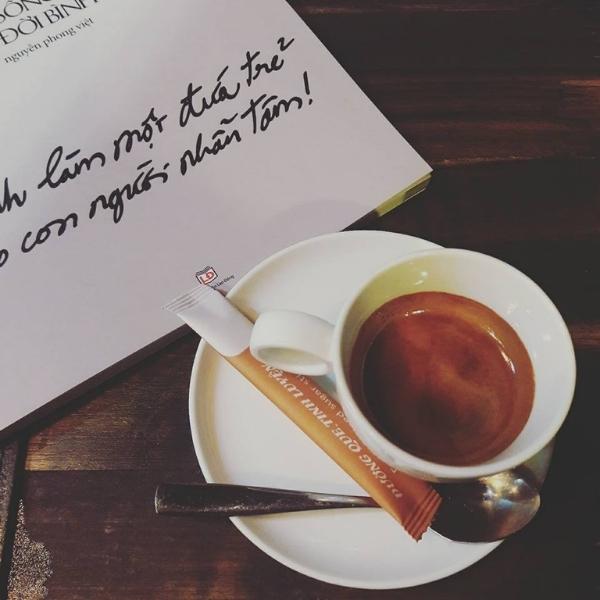 SỐNG
ĐỜI BÌNH
nguyễn phong việt
làm một đứa trẻ
con người nhẫn tâm!
LĐ
ĐƯỜNG QUE TINH LUYỆN
sugar